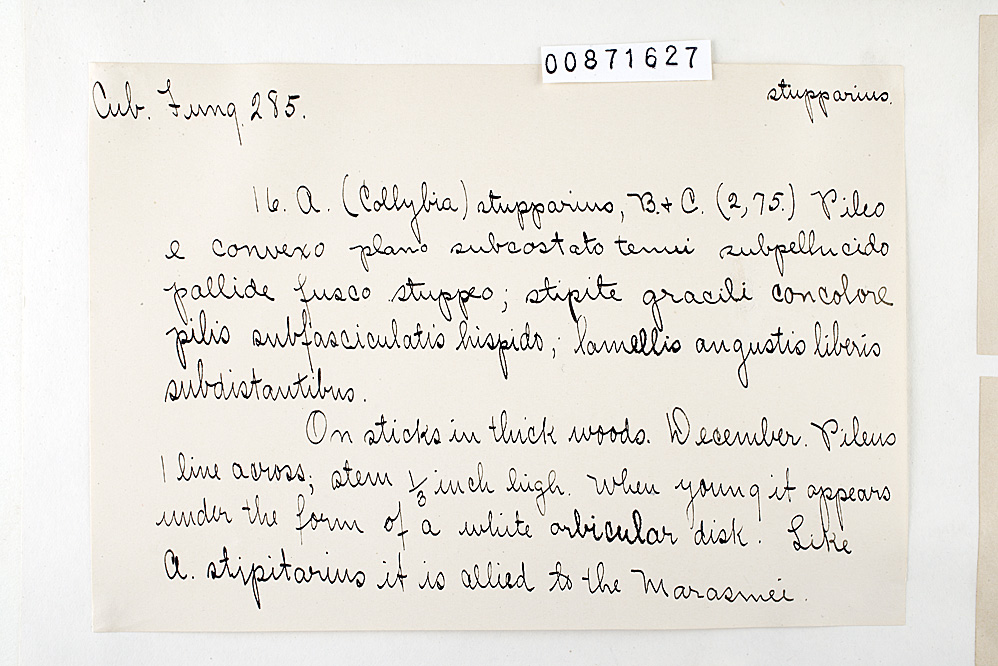 00871627
Cub. Fung. 285.
stupparius.
16. A. (Collybia) stupparius, B. & C. (2,75.) Pileo
e convexo plano subcostato tenui subpellucido
pallide fusco stuppeo; stipite gracili concolore
pilis subfasciculatis hispido; lamellis angustis liberis
subdistantibus.
On sticks in thick woods. December. Pileus
1 line across; stem 1/3 inch high. When young it appears
under the form of a white orbicular disk. Like
A. stipitarius it is allied to the Marasmei.